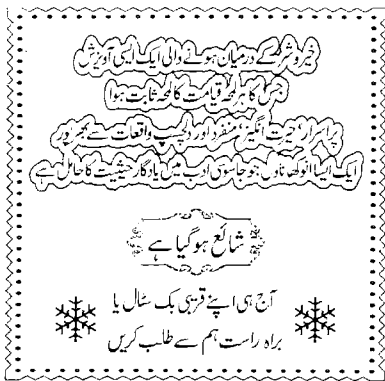 خیر و شر کے درمیان ہونے والی ایک ایسی آویزش
جس کا ہر لمحہ قیامت کا لمحہ ثابت ہوا
پراسرار حیرت انگیز منفرد اور دلچسپ واقعات سے بھرپور
ایک ایسا انوکھا ناول جو جاسوسی ادب میں یادگار حیثیت کا حامل ہے
شائع ہو گیا ہے
آج ہی اپنے قریبی بک سٹال یا
براہ راست ہم سے طلب کریں